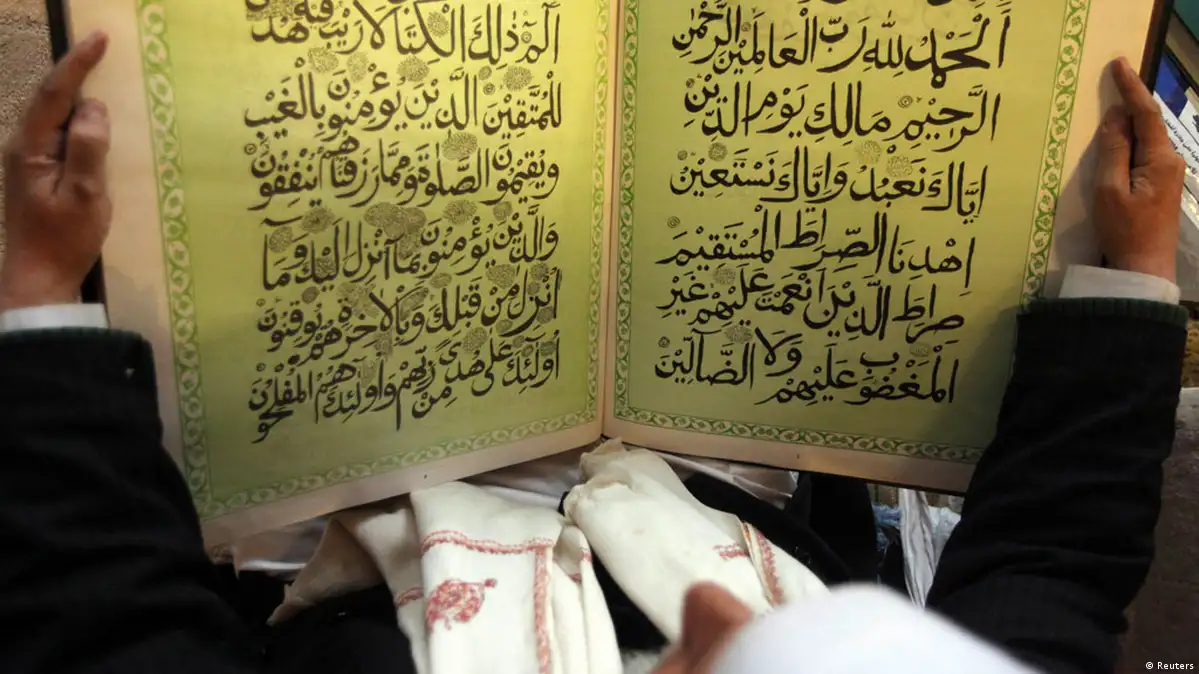 اَلْحَمْدُ لِلّٰهِ رَبِّ الْعَالَمِيْنَ الرَّحْمٰنِ
الرَّحِيْمِ مَالِكِ يَوْمِ الدِّيْنِ
اِيَّاكَ نَعْبُدُ وَاِيَّاكَ نَسْتَعِيْنُ
اِهْدِنَا الصِّرَاطَ الْمُسْتَقِيْمَ
صِرَاطَ الَّذِيْنَ اَنْعَمْتَ عَلَيْهِمْ غَيْرِ
الْمَغْضُوْبِ عَلَيْهِمْ وَلَا الضَّآلِّيْنَ
الٓمٓ ذٰلِكَ الْكِتَابُ لَا رَيْبَ فِيْهِ هُدًى
لِلْمُتَّقِيْنَ الَّذِيْنَ يُؤْمِنُوْنَ بِالْغَيْبِ
وَيُقِيْمُوْنَ الصَّلٰوةَ وَمِمَّا رَزَقْنَاهُمْ يُنْفِقُوْنَ
وَالَّذِيْنَ يُؤْمِنُوْنَ بِمَآ اُنْزِلَ اِلَيْكَ وَمَآ
اُنْزِلَ مِنْ قَبْلِكَ وَبِالْاٰخِرَةِ هُمْ يُوْقِنُوْنَ
اُولٰٓئِكَ عَلٰى هُدًى مِنْ رَبِّهِمْ وَاُولٰٓئِكَ هُمُ الْمُفْلِحُوْنَ
© Reuters